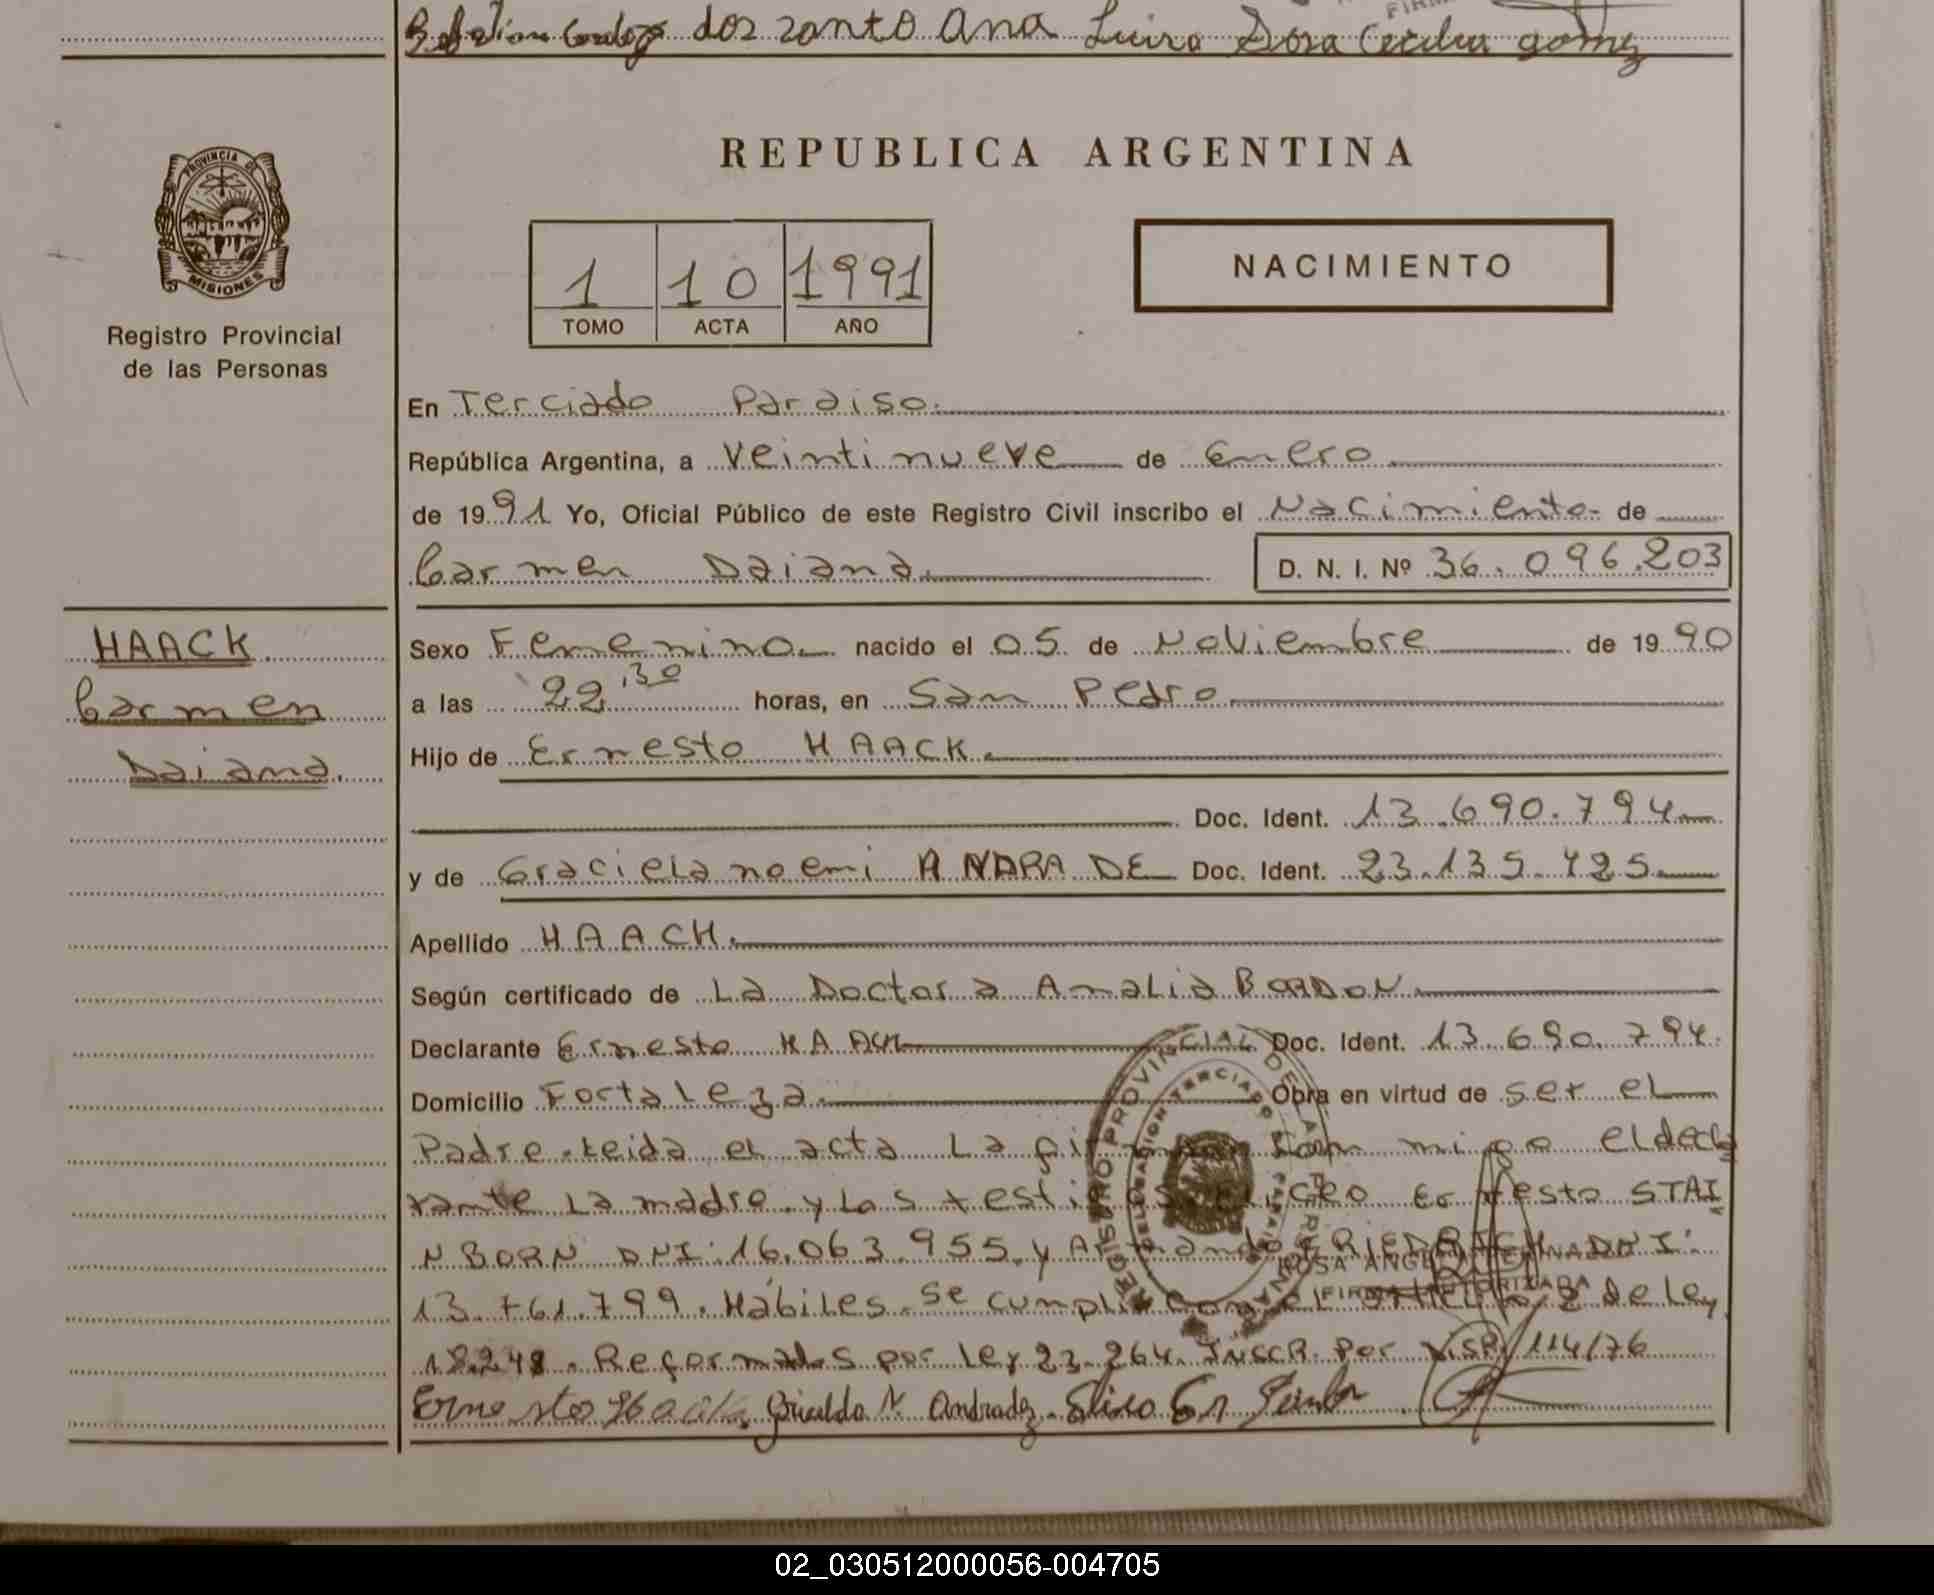 dos santo Ana Luisa Dora Cecilia gomez
PROVINCIA DE
MISIONES
Registro Provincial
de las Personas
REPUBLICA ARGENTINA
1 10 1991
TOMO ACTA AÑO
NACIMIENTO
En Terciado Paraiso.
República Argentina, a Veintinueve de Enero
de 1991 Yo, Oficial Público de este Registro Civil inscribo el Nacimiento de
Carmen Daiana. D. N. I. Nº 36.096.203
HAACK
Carmen
Daiana.
Sexo Femenino nacido el 05 de Noviembre de 1990
a las 22,30 horas, en San Pedro
Hijo de Ernesto HAACK.
Doc. Ident. 13.690.794
y de Graciela noemi ANDRADE Doc. Ident. 23.135.425
Apellido HAACH.
Según certificado de La Doctora Amalia BORDON.
Declarante Ernesto HAACK Doc. Ident. 13.690.794.
Domicilio Fortaleza. Obra en virtud de ser el
Padre. Leida el acta La firman Con migo el decla
rante La madre y Los testigos Eliceo Ernesto STAI
N BORN DNI: 16.063.955 y Armando FRIEDRICH DNI:
13.761.799. Hábiles. Se cumplio con el articulo 2 de Ley
18.248. Reformados por Ley 23.264. INSCR. Per DISP/114/76
REGISTRO PROVINCIAL DE LAS PERSONAS
DELEGACION TERCIADO PARAISO
ROSA ANGE
FIRMA AUTORIZADA
Ernesto Haack Andrade
02_030512000056-004705